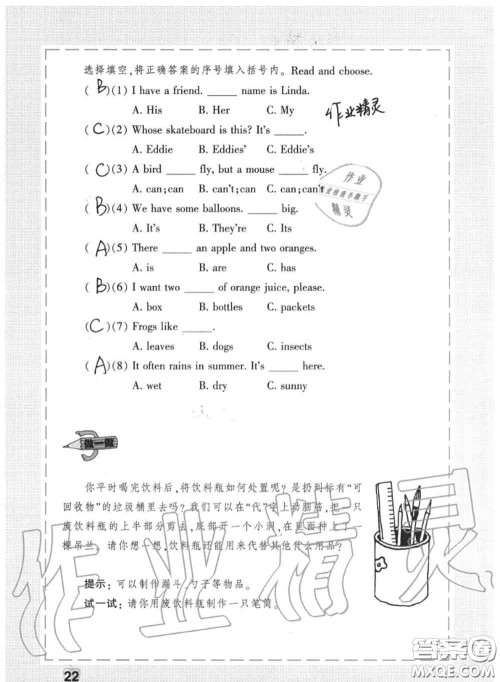 选择填空,将正确答案的序号填入括号内。Read and choose.
( B )(1) I have a friend. _____ name is Linda.
A. His B. Her C. My
作业精灵
( C )(2) Whose skateboard is this? It's _____.
A. Eddie B. Eddies' C. Eddie's
( C )(3) A bird _____ fly, but a mouse _____ fly.
A. can;can B. can't;can C. can;can't
作业
精灵
( B )(4) We have some balloons. _____ big.
A. It's B. They're C. Its
( A )(5) There _____ an apple and two oranges.
A. is B. are C. has
( B )(6) I want two _____ of orange juice, please.
A. box B. bottles C. packets
( C )(7) Frogs like _____.
A. leaves B. dogs C. insects
( A )(8) It often rains in summer. It's _____ here.
A. wet B. dry C. sunny
做一做
你平时喝完饮料后,将饮料瓶如何处置呢?是扔到标有“可
回收物”的垃圾桶里去吗?我们可以在“代”字上动脑筋,把一只
废饮料瓶的上半部分剪去,底部开一个小洞,在里面种上一
棵吊兰。请你想一想,饮料瓶还能用来代替其他什么用品?
提示:可以制作漏斗、勺子等物品。
试一试:请你用废饮料瓶制作一只笔筒。
作业精灵
22
答案圈
MXQE.COM